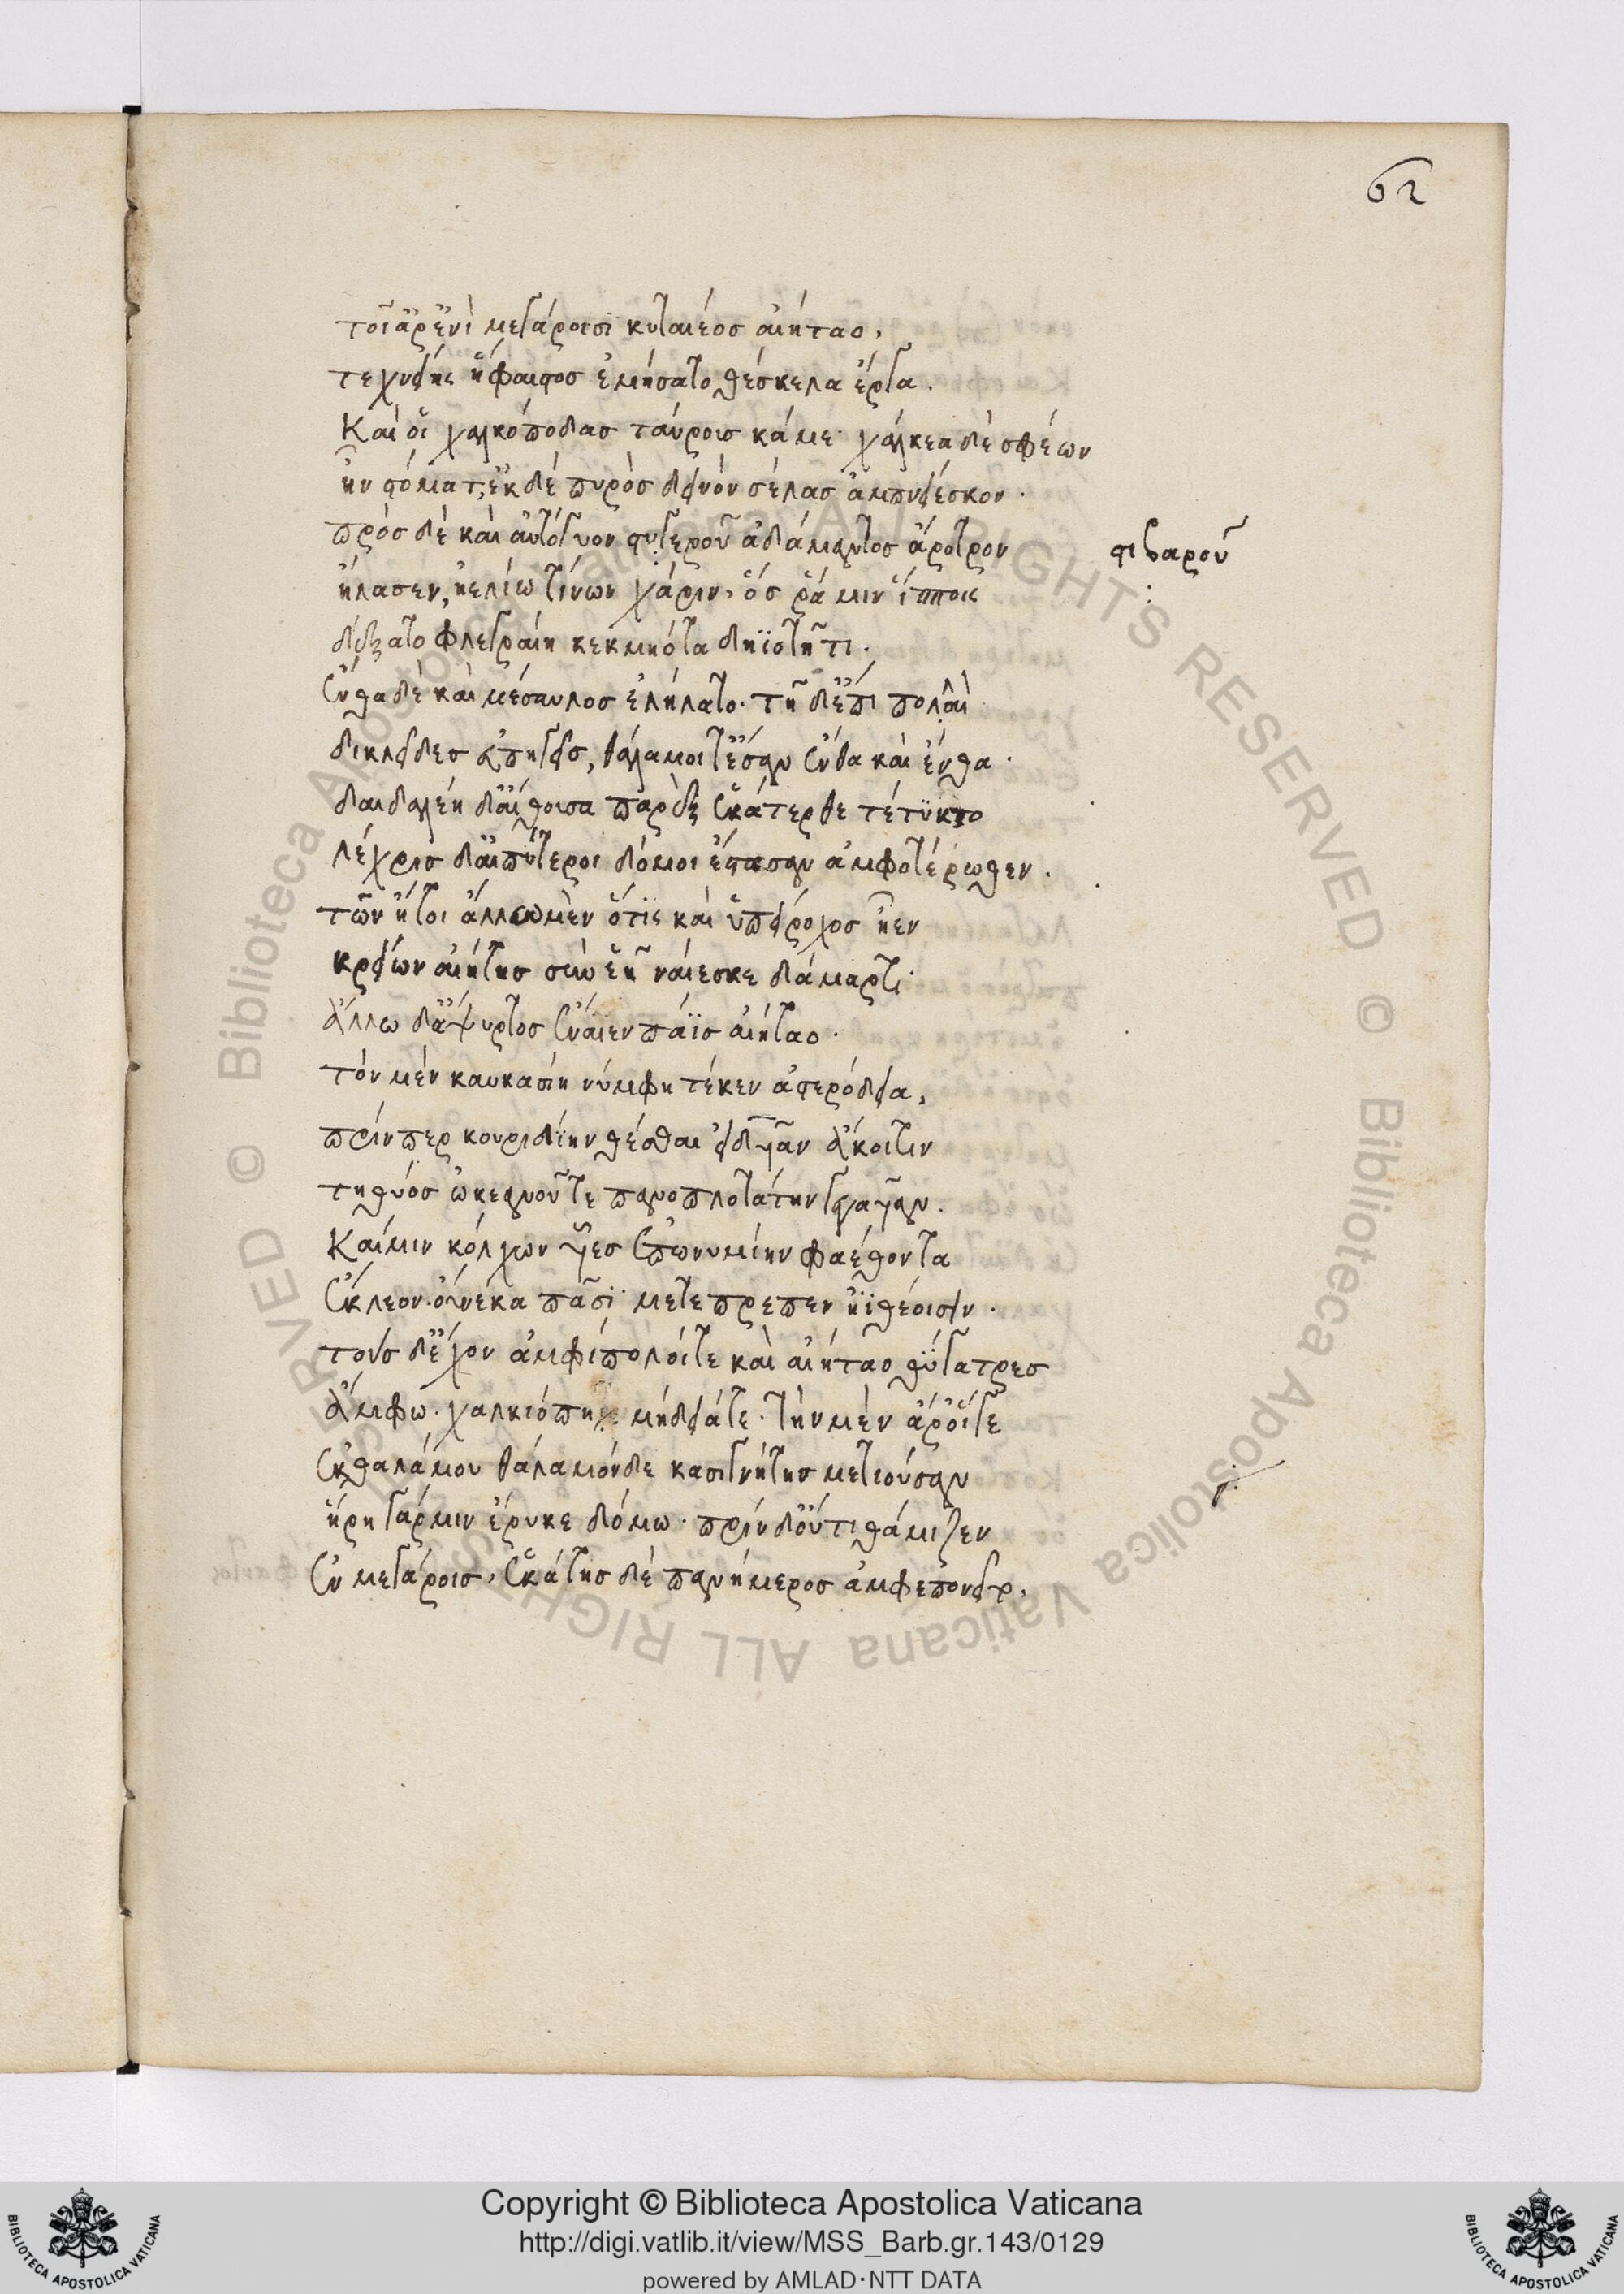 62
τοῖ ἄρ ἐνὶ μεγάροισϊ κυταιέος αἰήταο,
τεχνήεις ἥφαιστος ἐμήσατο θέσκελα ἔργα.
Καί οἱ χαλκόποδας ταύρους κάμε· χάλκεα δέ σφέων
ἦν στόματ', ἐκ δὲ πυρὸς δεινὸν σέλας ἀμπνείεσκον·
πρὸς δὲ καὶ αὐτόγυον στυγεροῦ ἀδάμαντος ἄροτρον
στιβαροῦ
ἤλασεν, ἠελίω τίνων χάριν, ὅς ῥά μιν ἵπποις
δέξατο φλεγραίη κεκμηότα δηϊοτῆτι.
ἔνθα δὲ καὶ μέσαυλος ἐλήλατο· τῇ δ' ἐπὶ πολλαὶ
δικλίδες εὐπηγεῖς, θάλαμοί τ' ἔσαν ἔνθα καὶ ἔνθα·
δαιδαλέη δ' αἴθουσα παρὲξ ἑκάτερθε τέτυκτο
λέχρις δ' αἰπύτεροι δόμοι ἕστασαν ἀμφοτέρωθεν.
τῶν ἤτοι ἄλλω μὲν ὅτις καὶ ὑπείροχος ἦεν
κρείων αἰήτης σὺν ἑῇ ναίεσκε δάμαρτι·
ἄλλω δ' ἄψυρτος ἔναιεν πάϊς αἰήταο·
τὸν μὲν καυκασίη νύμφη τέκεν ἀστερόδεια,
πρίν περ κουριδίην θέσθαι εἰδυῖαν ἄκοιτιν
τηθύος ὠκεανοῦ τε πανοπλοτάτην γεγαυῖαν.
Καί μιν κόλχων υἷες ἐπωνυμίην φαέθοντα
ἔκλεον· οὕνεκα πᾶσϊ μετέπρεπεν ἠϊθέοισιν.
τοὺς δ' ἔχον ἀμφίπολοί τε καὶ αἰήταο θύγατρες
ἄμφω· χαλκιόπη μήδειά τε· τὴν μὲν ἄρ' οἵγε
ἐκ θαλάμου θάλαμόνδε κασιγνήτης μετιοῦσαν
ἥρη γάρ μιν ἔρυκε δόμω· πρὶν δ' οὔτι θάμιζεν
ἐν μεγάροις, ἑκάτης δὲ πανήμερος ἀμφεπονεῖτο,
Copyright © Biblioteca Apostolica Vaticana
http://digi.vatlib.it/view/MSS_Barb.gr.143/0129
powered by AMLAD·NTT DATA